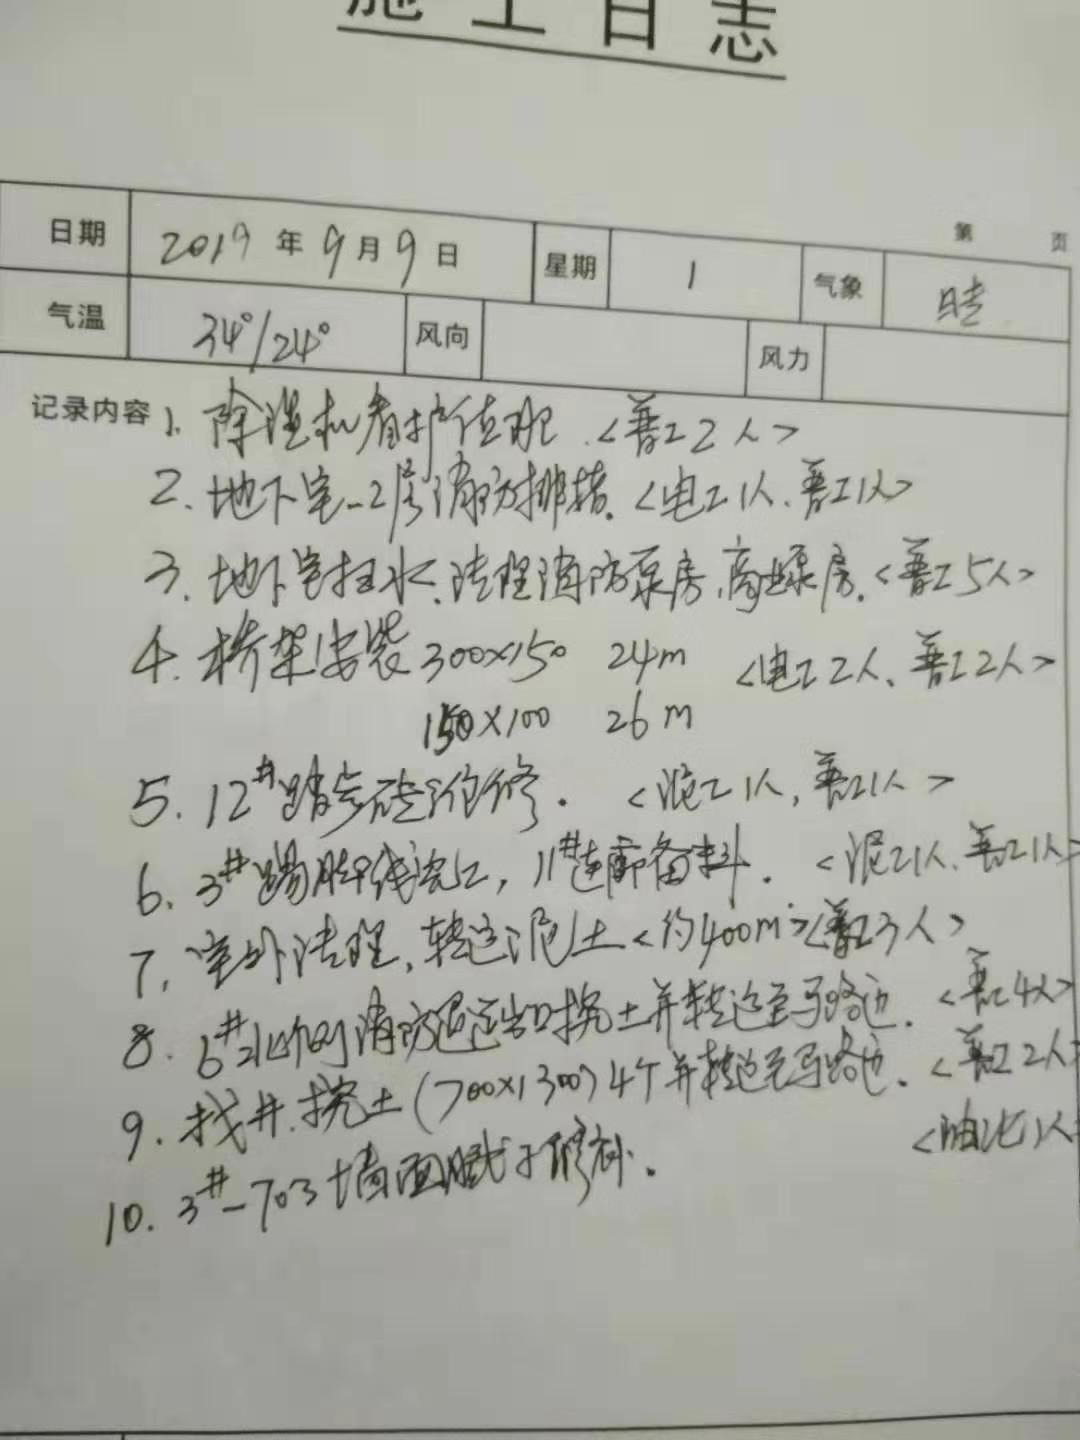 施工日志
第 页
日期 2019年9月9日 星期 1 气象 晴
气温 34°/24° 风向 风力
记录内容 1. 除湿机看护值班.<普工2人>
2. 地下室-2层消防排查.<电工1人、普工1人>
3. 地下室扫水.清理消防泵房,商业泵房.<普工5人>
4. 桥架安装300×150 24m <电工2人、普工2人>
150×100 26m
5. 12#踏步砖维修. <泥工1人,普工1人>
6. 3#踢脚线施工,11#连廊备料. <泥工1人.普工1人>
7. 室外清理,转运泥土<约400m²<普工3人>
8. 6#北侧消防通道出口挖土并转运至马路边.<普工4人>
9. 找井.挖土(700×1300)4个并转运至马路边.<普工2人>
10. 3#-703墙面腻子修补. <油工1人>